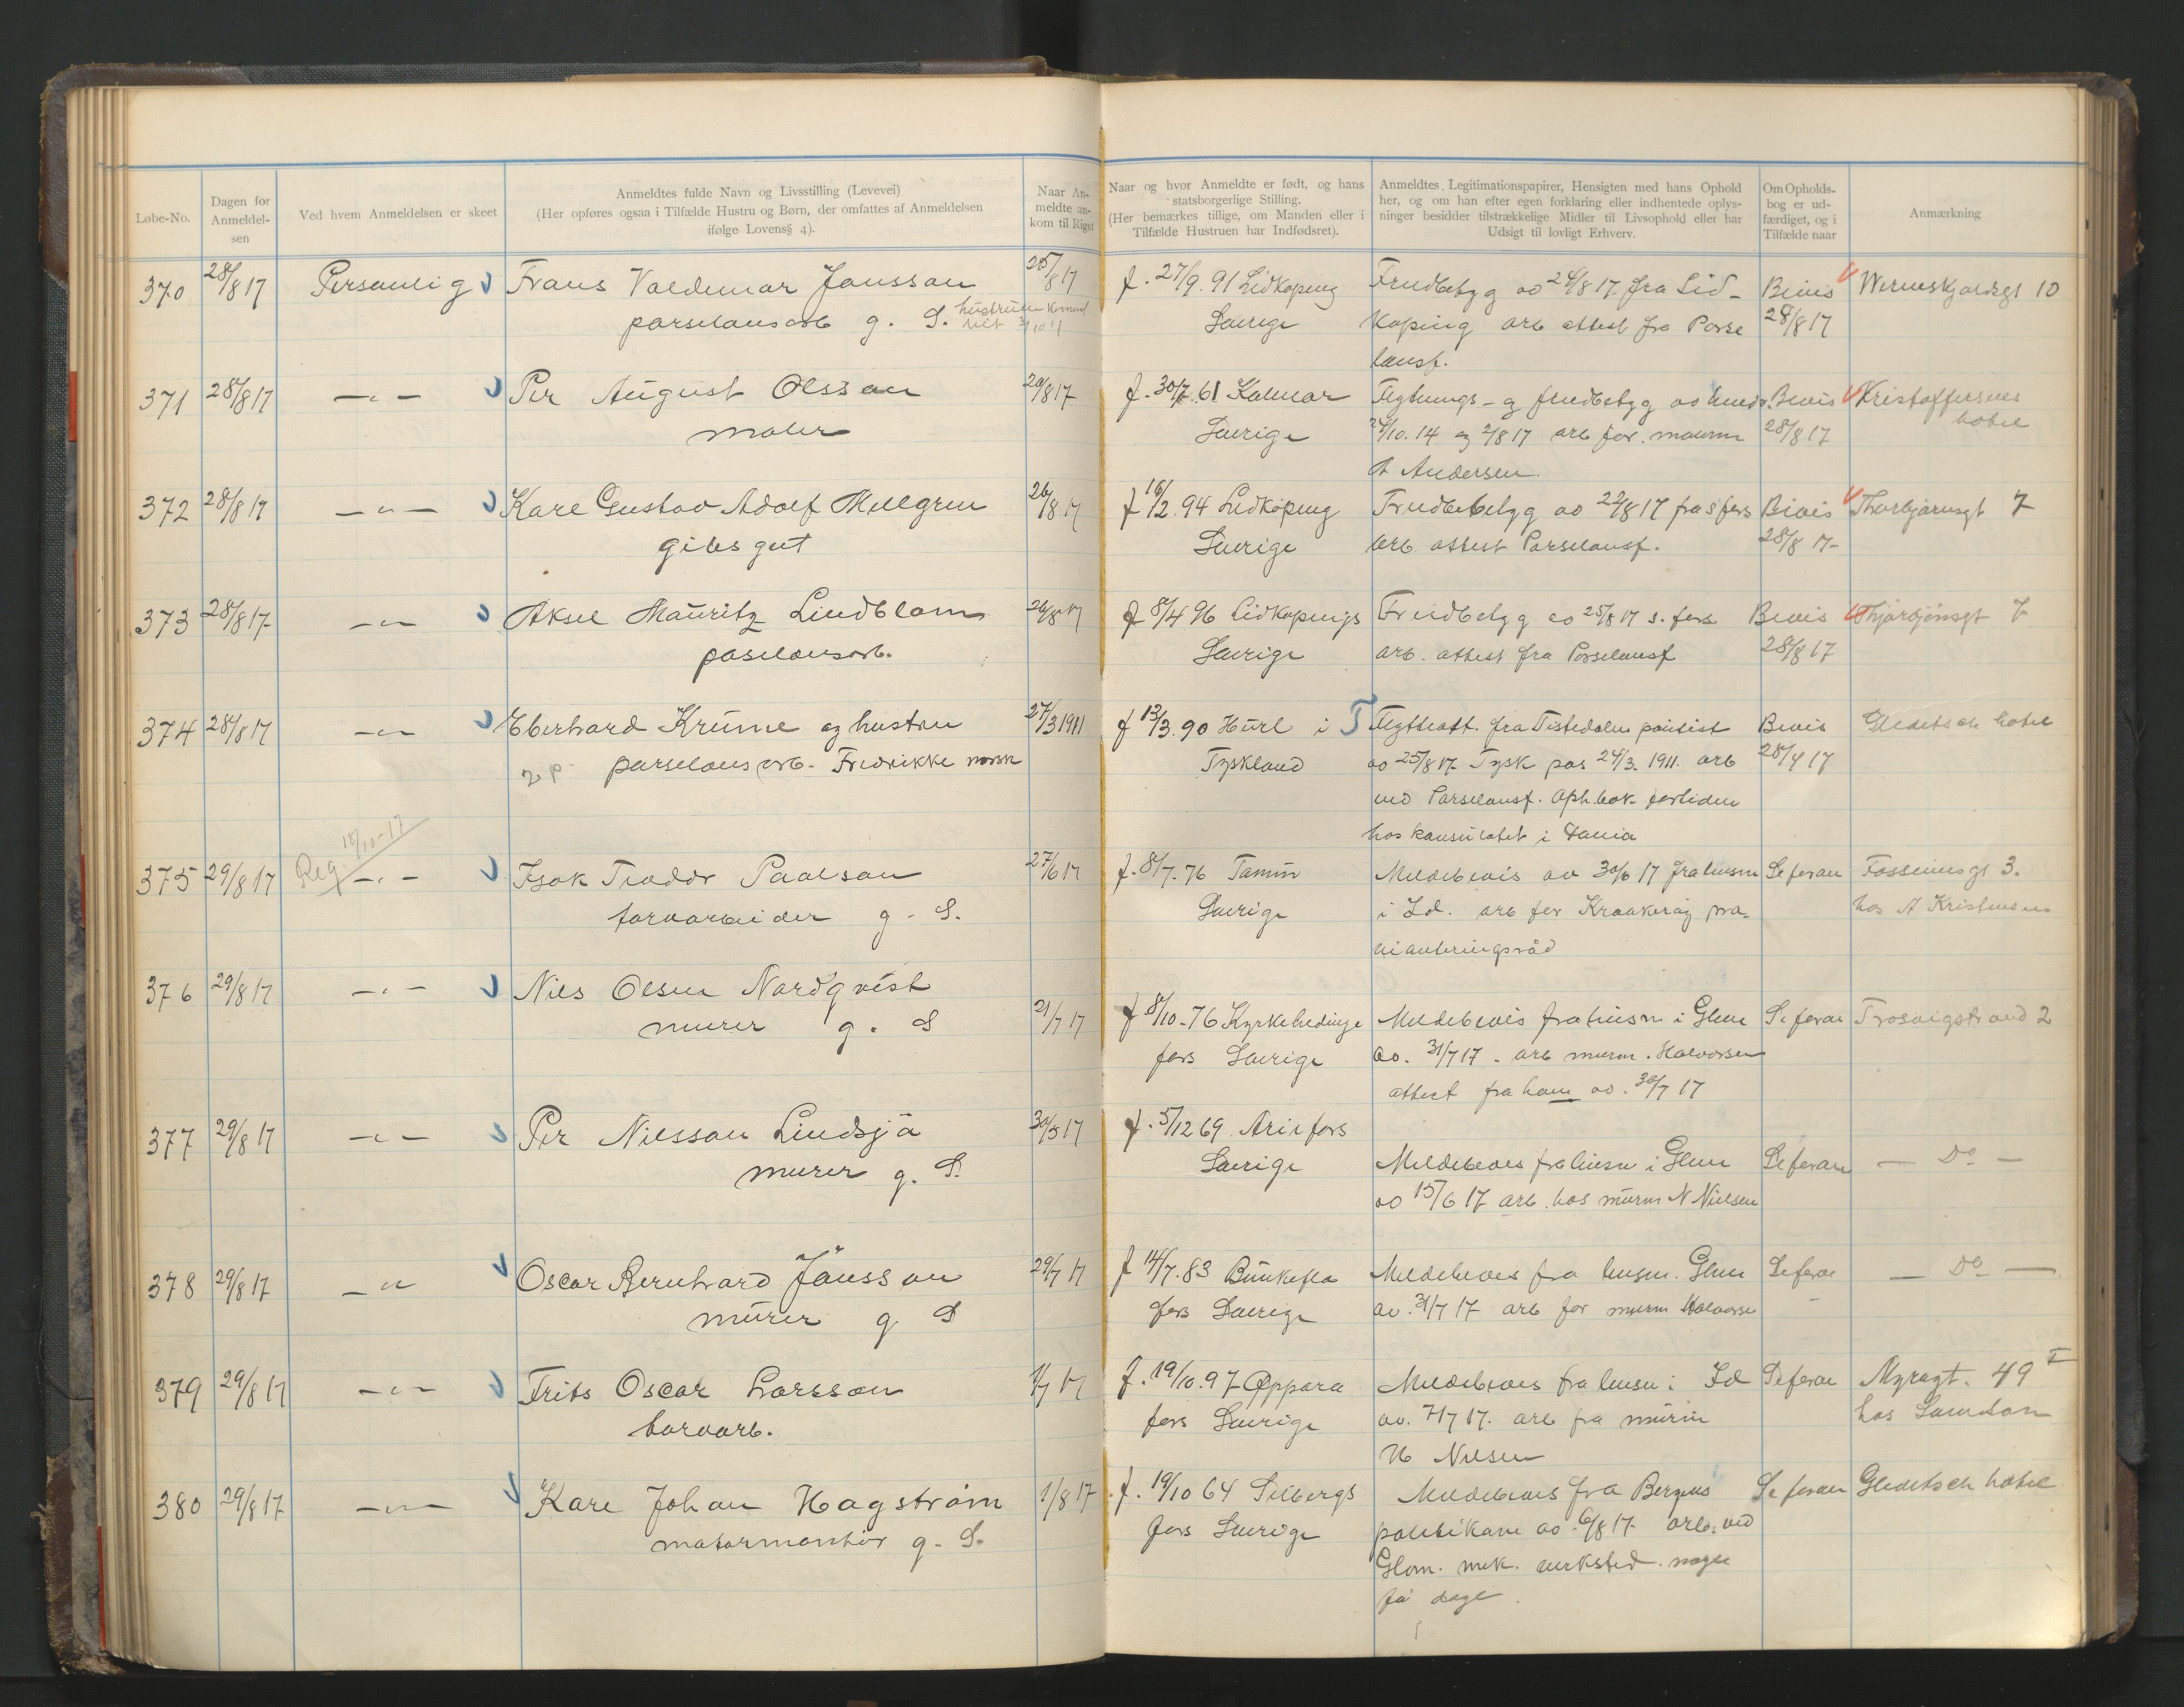 Løbe-No.
Dagen for
Anmeldel-
sen
Ved hvem Anmeldelsen er skeet
Anmeldtes fulde Navn og Livsstilling (Levevei)
(Her opføres ogsaa i Tilfælde Hustru og Børn, der omfattes af Anmeldelsen
ifølge Lovens § 4).
Naar An-
meldte an-
kom til Riget
Naar og hvor Anmeldte er født, og hans
statsborgerlige Stilling.
(Her bemærkes tillige, om Manden eller i
Tilfælde Hustruen har Indfødsret).
Anmeldtes Legitimationspapirer, Hensigten med hans Ophold
her, og om han efter egen forklaring eller indhentede oplys-
ninger besidder tilstrækkelige Midler til Livsophold eller har
Udsigt til lovligt Erhverv.
Om Opholds-
bog er ud-
færdiget, og i
Tilfælde naar
Anmærkning
370 28/8 17 Personlig Frans Valdemar Jansson 25/8 17 f. 27/9. 91 Lidkøping Fredbetyg ao 24/8 17 fra Lid- Bevis Wernskjoldsgt 10
porselansarb g. S. hustruen 3/10 17 Sverige køping arb attest fra Porse 28/8 17
lansf.
371 28/8 17 — " — Per August Olsson 20/8 17 f. 30/7. 61 Kalmar Flytnings- g fredbetyg ao Bevis Kristoffersens
maler Sverige 24/10. 14 og 2/8 17 arb for. murm 28/8 17 hotel
A Andersen
372 28/8 17 — " — Karl Gustav Adolf Mellgren 26/8 17 f 16/2. 94 Lidkøping Fredbebetyg ao 22/8 17 fra s fors Bevis Thorbjørnsgt 7
gibsgut Sverige arb attest Porselansf. 28/8 17-
373 28/8 17 — " — Aksel Mauritz Lindblom 26/8 17 f 8/4 96 Lidkøpings Fredbetyg ao 25/8 17 s. fors Bevis Thjorbjönsgt 7
poselansarb. Sverige arb. attest fra Porselansf 28/8 17
374 28/8 17 — " — Eberhard Krüme og hustru 27/3 1911 f 13/3. 90 Hürl i T Flytteatt. fra Tistedalen politist Bevis Gleditsch hotel
2 p porselansarb. Fredrikke norsk Tyskland ao 25/8 17. Tysk pas 24/3. 1911. arb 28/8 17
ved Porselansf. Oph.bok fortiden
hos konsulatet i Dania
Reg. 18/10-17
375 29/8 17 — " — Isak Teodor Paalson 27/6 17 f. 8/7. 76 Meldebevis av 30/6 17 fra lensm Se foran Fossumsgt 3.
torvarbeider g. S. Sverige i Id. arb for Kraakerøy pro- hos A Kristensen
vianteringsråd
376 29/8 17 — " — Nils Olsen Nordqvist
murer g. S 21/7 17 f 8/10-76 Kyrkehedinge Meldebevis fra lensm i Glem Se foran Trosvigstrand 2
fors Sverige ao. 31/7 17. arb murm. Halvorsen
attest fra ham ao. 30/7 17
377 29/8 17 — " — Per Nilsson Lindsjö 30/5 17 f. 5/12 69 Arie fors
murer g. S. Sverige Meldebevis fra lensm i Glem Se foran — Do —
ao 15/6 17 arb. hos murm N Nielsen
378 29/8 17 — " Oscar Bernhard Jönsson 29/7 17 f 14/7. 83 Bunkeflo Meldebevis fra lensm. Glem Se foran — Do —
murer g S fors Sverige ao. 31/7 17 arb for murm Halvorse
379 29/8 17 — " — Frits Oscar Larsson 1/7 17 f. 19/10. 97 Oppora Meldebevis fra lensm i Id Se foran Myragt. 49 I
torvarb. fors Sverige ao. 7/7 17. arb fra murm hos
N Nilsen
380 29/8 17 — " — Karl Johan Hagstrøm 1/8 17 f. 19/10 64 Silbergs Meldebevis fra Bergens Se foran Gleditsch hotel
motormontør g. S. fors Sverige politikam ao. 6/8 17. arb. ved
Glom. mek. verksted nogle
få dage.